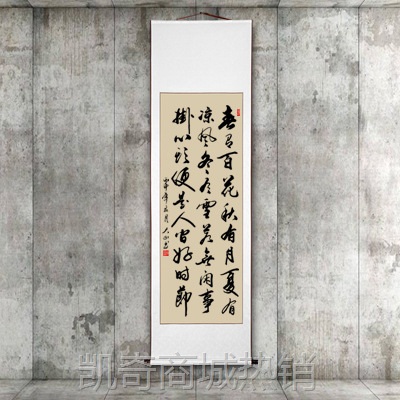 春有百花秋有月夏有
凉风冬有雪若无闲事
挂心头便是人间好时节
凯奇商城热销